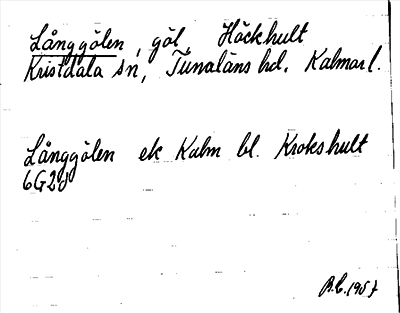 Långgölen, göl, Höckhult
Kristdala sn, Tunaläns hd. Kalmar l.
Långgölen ek Kalm bl. Krokshult
6G2d